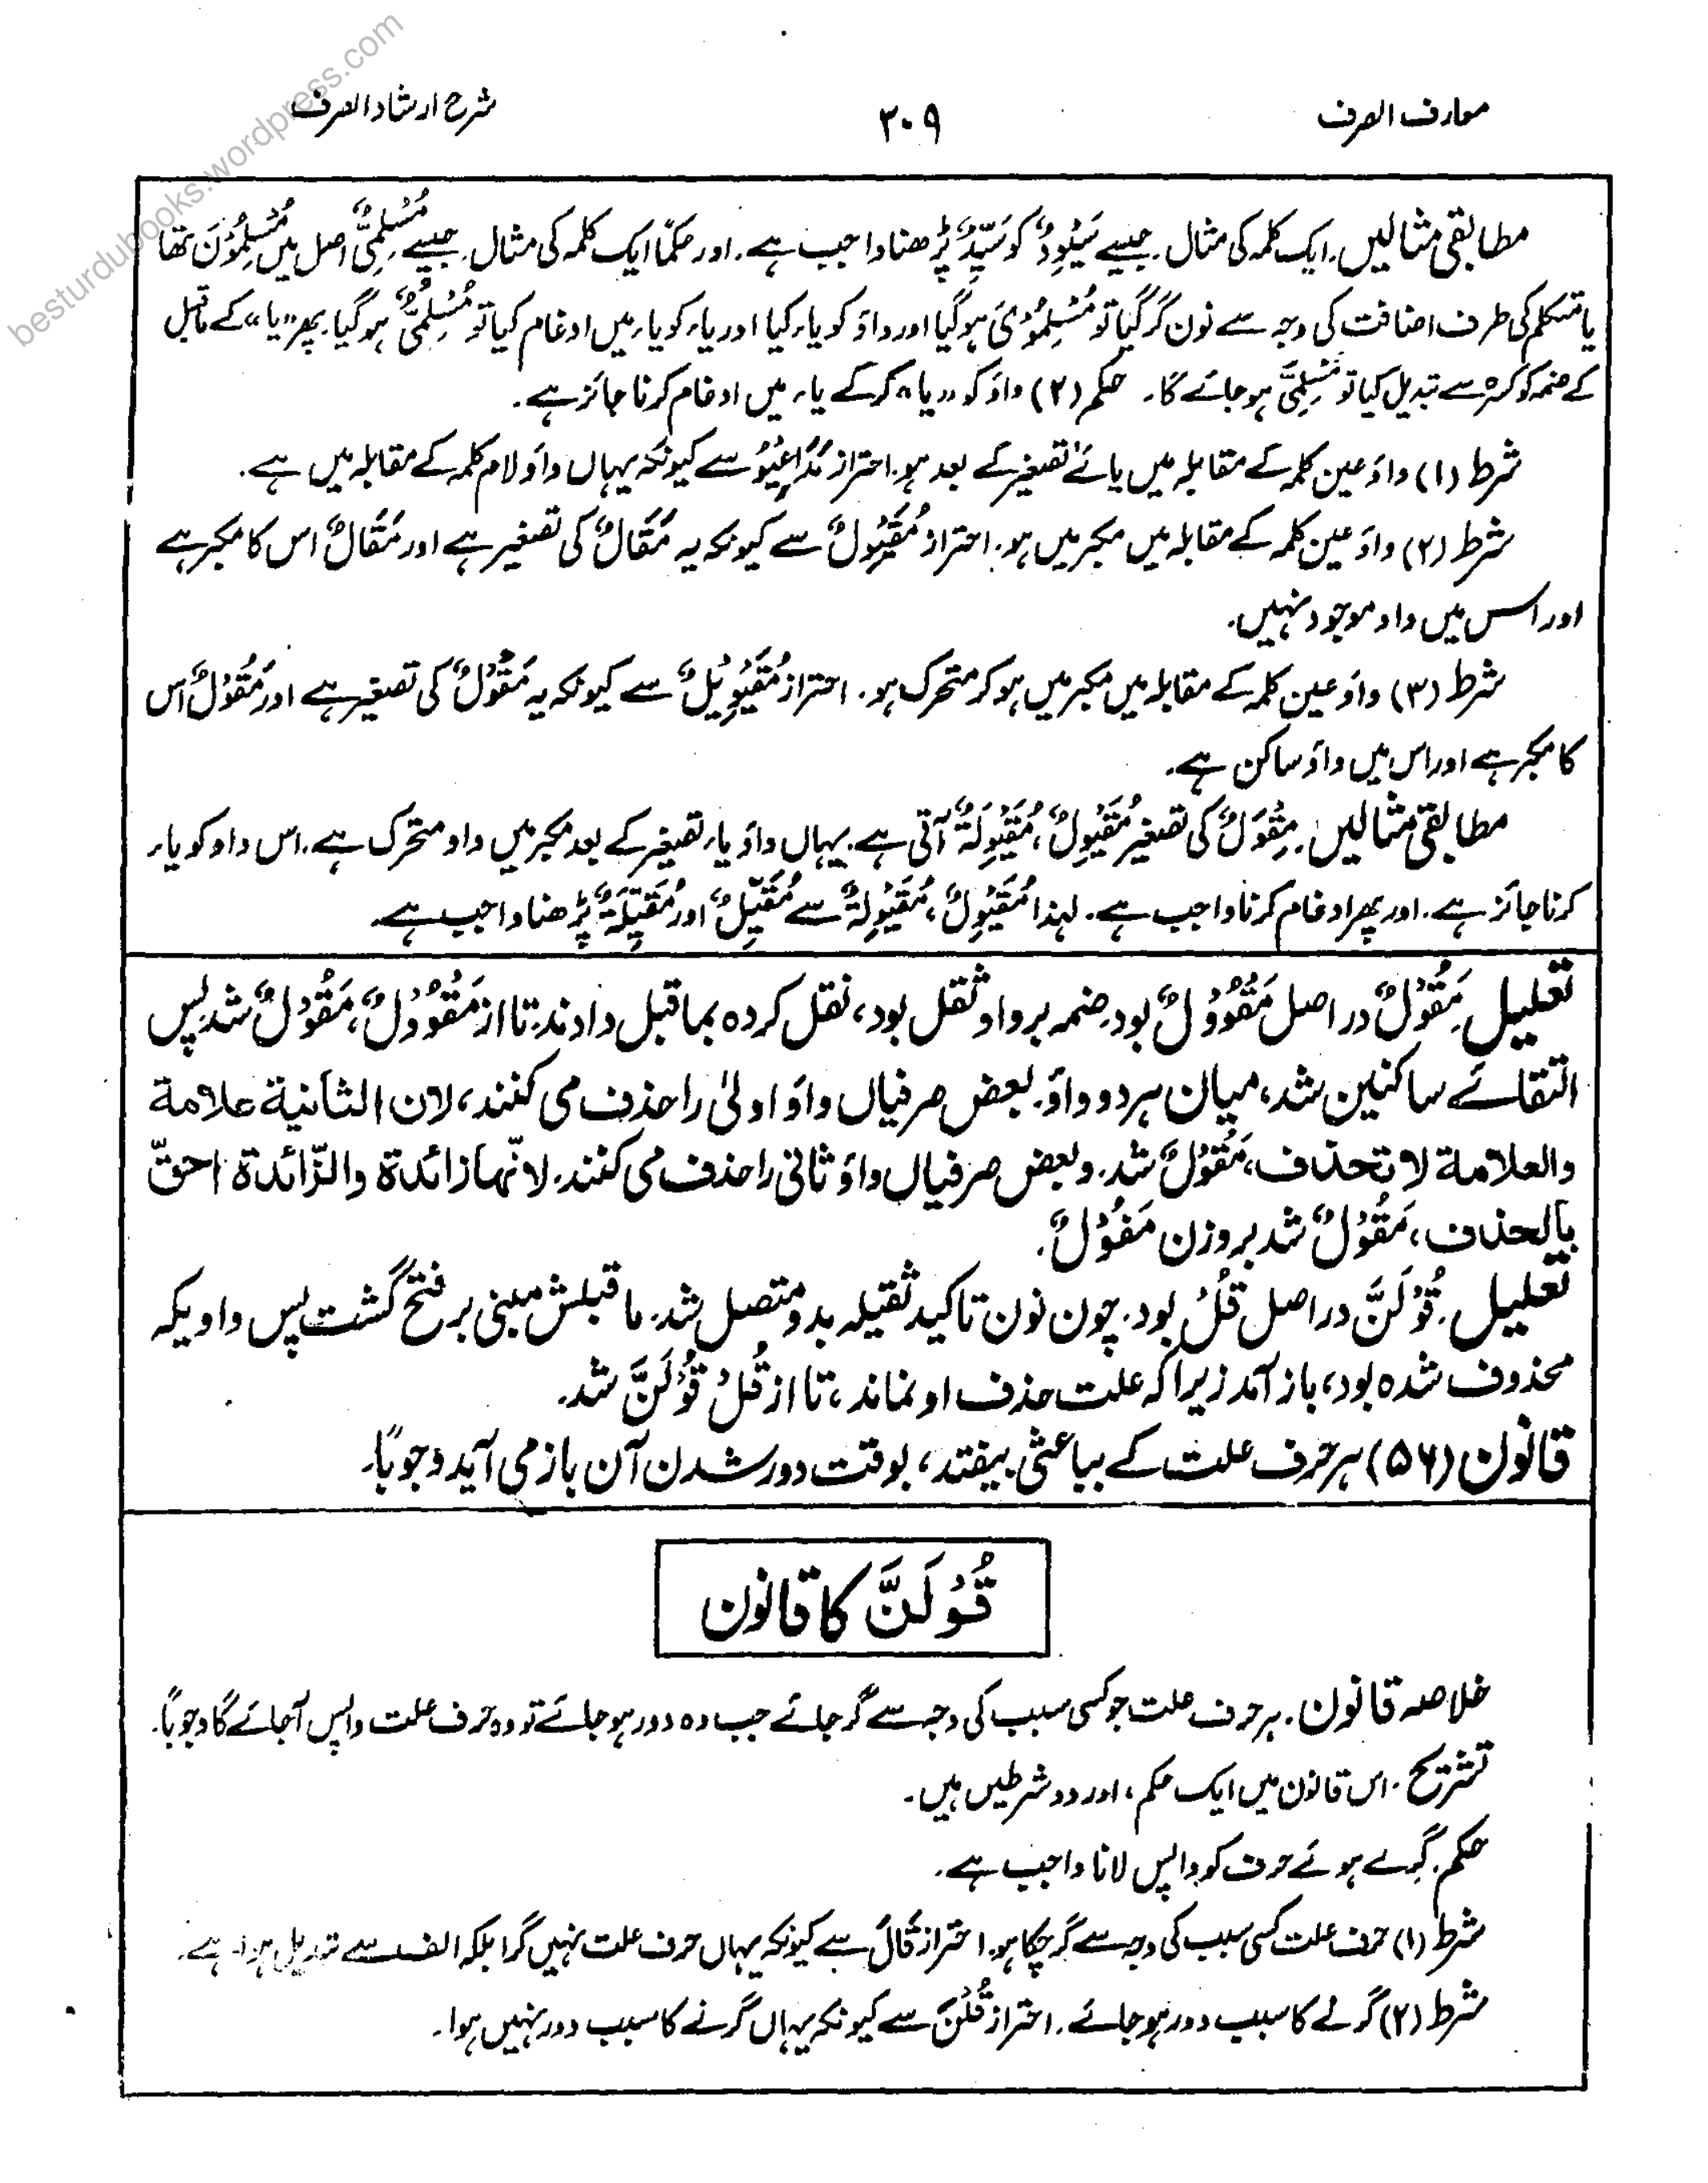 معارف الصرف ۲۰۹ شرح ارشاد الصرف
besturdubooks.wordpress.com
مطابقی مثالیں۔ ایک کلمہ کی مثال۔ جیسے سَیْوِدٌ کو سَیِّدٌ پڑھنا واجب ہے۔ اور حکمًا ایک کلمہ کی مثال۔ جیسے مُسْلِمِیَّ اصل میں مُسْلِمُوْنَ تھا
یا متکلم کی طرف اضافت کی وجہ سے نون گر گیا تو مُسْلِمُوْیَ ہوگیا اور واؤ کو یاء کیا اور یاء کو یاء میں ادغام کیا تو مُسْلِمُیَّ ہوگیا۔ پھر "یا" کے ماقبل
کے ضمہ کو کسرہ سے تبدیل کیا تو مُسْلِمِیَّ ہو جائے گا۔ حکم (۲) واؤ کو "یا" کرکے یاء میں ادغام کرنا جائز ہے۔
شرط (۱) واؤ عین کلمہ کے مقابلہ میں یائے تصغیر کے بعد ہو۔ احتراز مُدَاعِیْوٌ سے کیونکہ یہاں واؤ لام کلمہ کے مقابلہ میں ہے۔
شرط (۲) واؤ عین کلمہ کے مقابلہ میں مکبر میں ہو۔ احتراز مُقَیْوِلٌ سے کیونکہ یہ مَقَالٌ کی تصغیر ہے اور مَقَالٌ اس کا مکبر ہے
اور اس میں واو موجود نہیں۔
شرط (۳) واؤ عین کلمہ کے مقابلہ میں مکبر میں ہو کر متحرک ہو۔ احتراز مُقَیْوِیْلٌ سے کیونکہ یہ مَقُوْلٌ کی تصغیر ہے اور مَقُوْلٌ اس
کا مکبر ہے اور اس میں واؤ ساکن ہے۔
مطابقی مثالیں۔ مِقْوَلٌ کی تصغیر مُقَیْوِلٌ، مُقَیْوِلَةٌ آتی ہے۔ یہاں واؤ یاء تصغیر کے بعد مکبر میں واو متحرک ہے۔ اس واو کو یاء
کرنا جائز ہے۔ اور پھر ادغام کرنا واجب ہے۔ لہذا مُقَیْوِلٌ، مُقَیْوِلَةٌ سے مُقَیِّلٌ اور مُقَیِّلَةٌ پڑھنا واجب ہے۔
تعلیل۔ مَقُوْلٌ در اصل مَقْوُوْلٌ بود۔ ضمہ بر واو ثقل بود، نقل کردہ بما قبل دادند۔ تا از مَقْوُوْلٌ، مَقُوْلٌ شد۔ پس
التقائے ساکنین شد، میان ہر دو واؤ۔ بعض صرفیاں واؤ اولیٰ را حذف می کنند، لان الثانیة علامة
والعلامة لا تحذف، مَقُوْلٌ شد۔ وبعض صرفیاں واؤ ثانی را حذف می کنند۔ لانّها زائدة والزّائدة احقّ
بالحذف، مَقُوْلٌ شد بروزن مَفُوْلٌ۔
تعلیل۔ قُوْلَنَّ در اصل قُلْ بود۔ چون نون تاکید ثقیلہ بدو متصل شد۔ ما قبلش مبنی بر فتح گشت پس واویکہ
محذوف شدہ بود، باز آمد زیرا کہ علت حذف او نماند، تا از قُلْ قُوْلَنَّ شد۔
قانون (۵۶) ہر حرف علت کے بباعثی بیفتد، بوقت دور شدن آن باز می آید وجوبًا۔
قُوْلَنَّ کا قانون
خلاصہ قانون۔ ہر حرف علت جو کسی سبب کی وجہ سے گر جائے جب وہ دور ہو جائے تو وہ حرف علت واپس آجائے گا وجوباً۔
تشریح۔ اس قانون میں ایک حکم، اور دو شرطیں ہیں۔
حکم۔ گرے ہوئے حرف کو واپس لانا واجب ہے۔
شرط (۱) حرف علت کسی سبب کی وجہ سے گر چکا ہو۔ احتراز قَالَ سے کیونکہ یہاں حرف علت نہیں گرا بلکہ الف سے تبدیل ہوا ہے۔
شرط (۲) گرنے کا سبب دور ہو جائے۔ احتراز قُلْنَ سے کیونکہ یہاں گرنے کا سبب دور نہیں ہوا۔